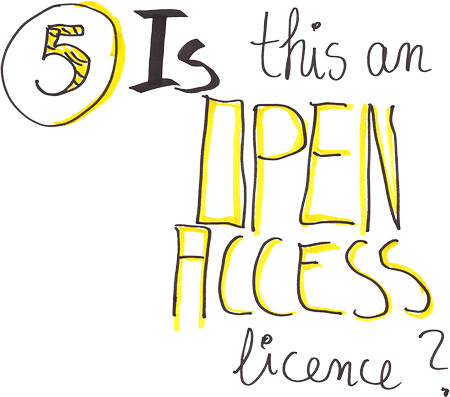 5 Is this an
OPEN
ACCESS
licence?